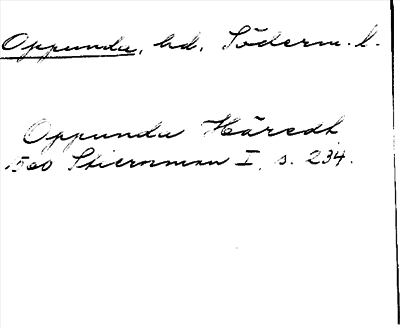 Oppunda, hd, Söderm. l.
Oppunda Häredt
1560 Stiernman I, s. 234.